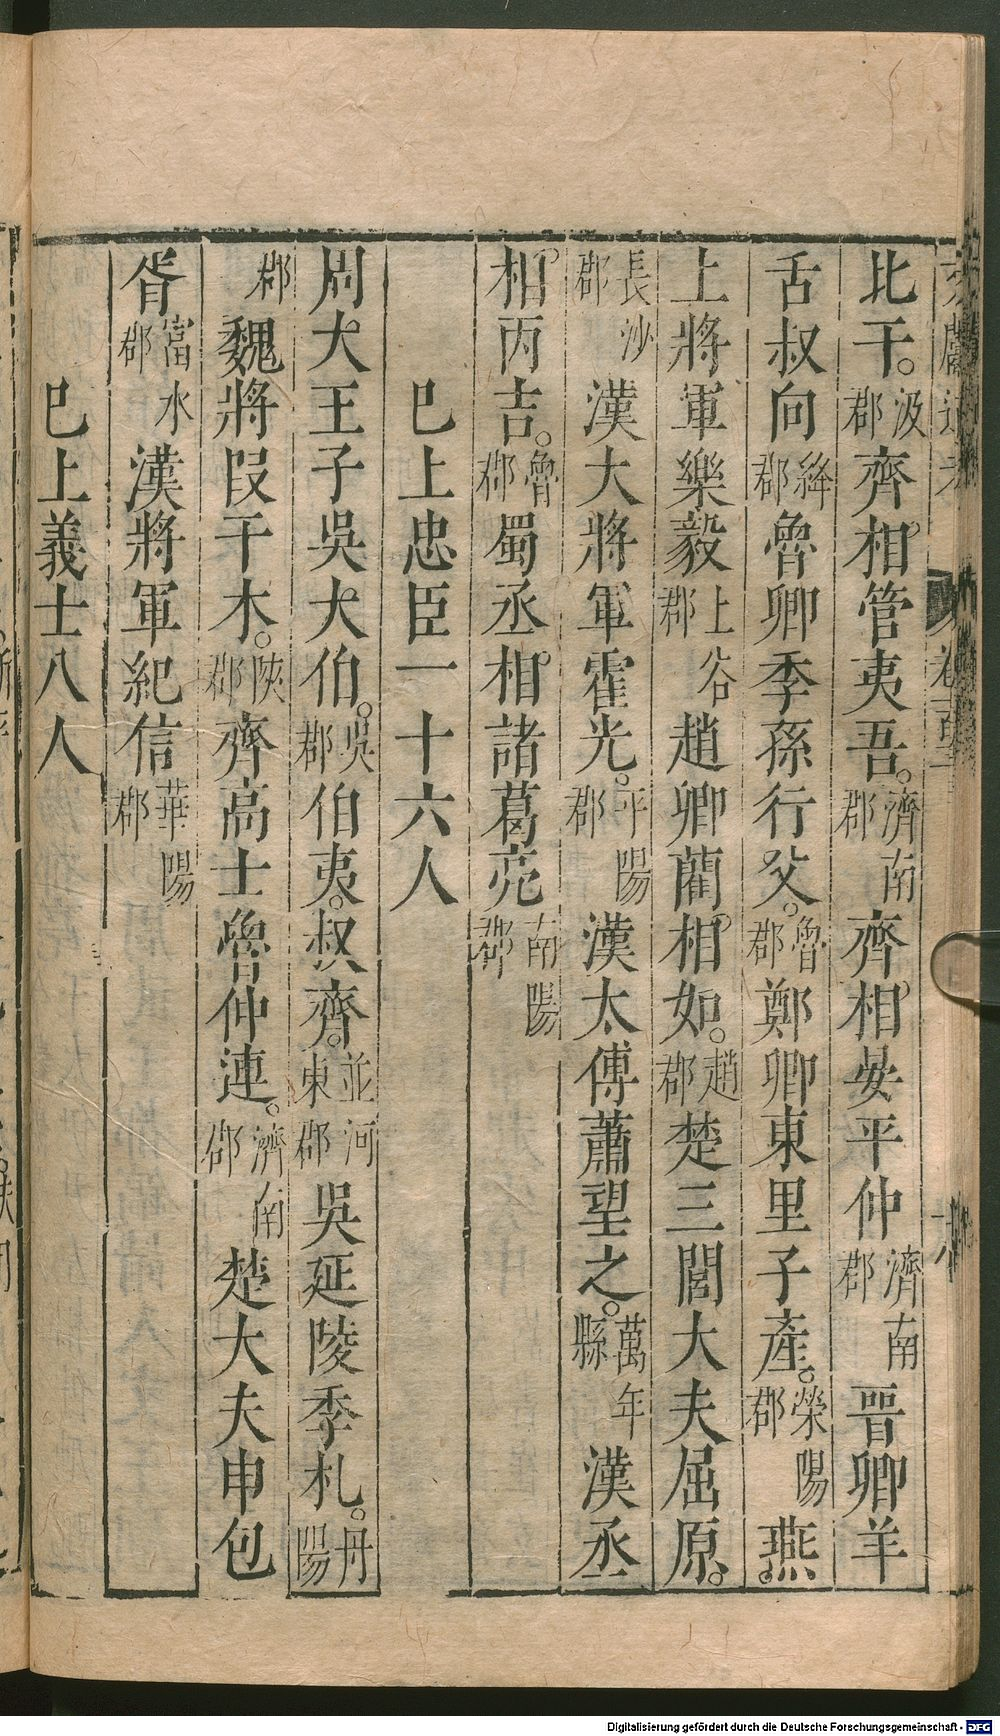 比干汲郡齊相管夷吾濟南郡齊相晏平仲濟南郡晉卿羊
舌叔向絳郡魯卿季孫行父魯郡鄭卿東里子產滎陽郡燕
上將軍樂毅上谷郡趙卿藺相如趙郡楚三閭大夫屈原
長沙郡漢大將軍霍光平陽郡漢太傅蕭望之萬年縣漢丞
相丙吉魯郡蜀丞相諸葛亮南陽郡
巳上忠臣一十六人
周太王子吳太伯吳郡伯夷叔齊並河東郡吳延陵季札丹陽
郡魏將段干木陝郡齊高士魯仲連濟南郡楚大夫申包
胥富水郡漢將軍紀信華陽郡
巳上義士八人
十八
Digitalisierung gefördert durch die Deutsche Forschungsgemeinschaft - DFG